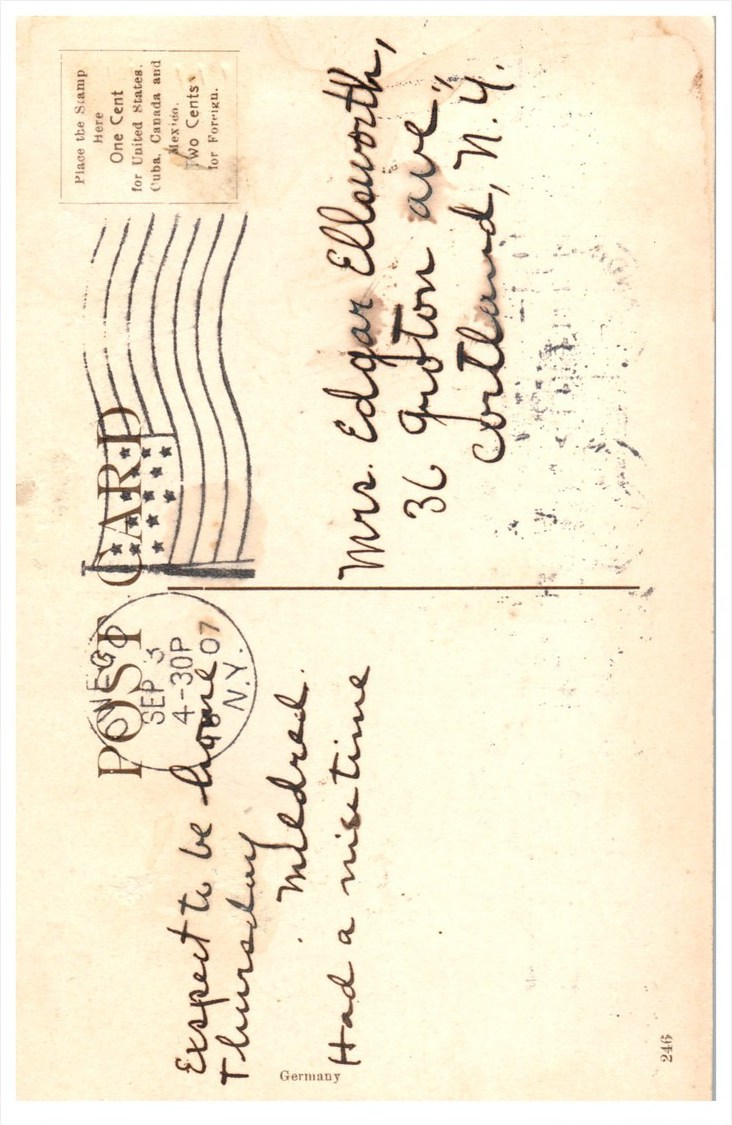 POST CARD
Place the Stamp
Here
One Cent
for United States.
Cuba, Canada and
Mexico.
Two Cents
for Foreign.
SEP 3
4-30P
07
N.Y.
Exspect to be home
Thursday
Mildred.
Had a nise time
Mrs. Edgar Ellsworth,
36 Groton ave"
Cortland, N.Y.
Germany
246